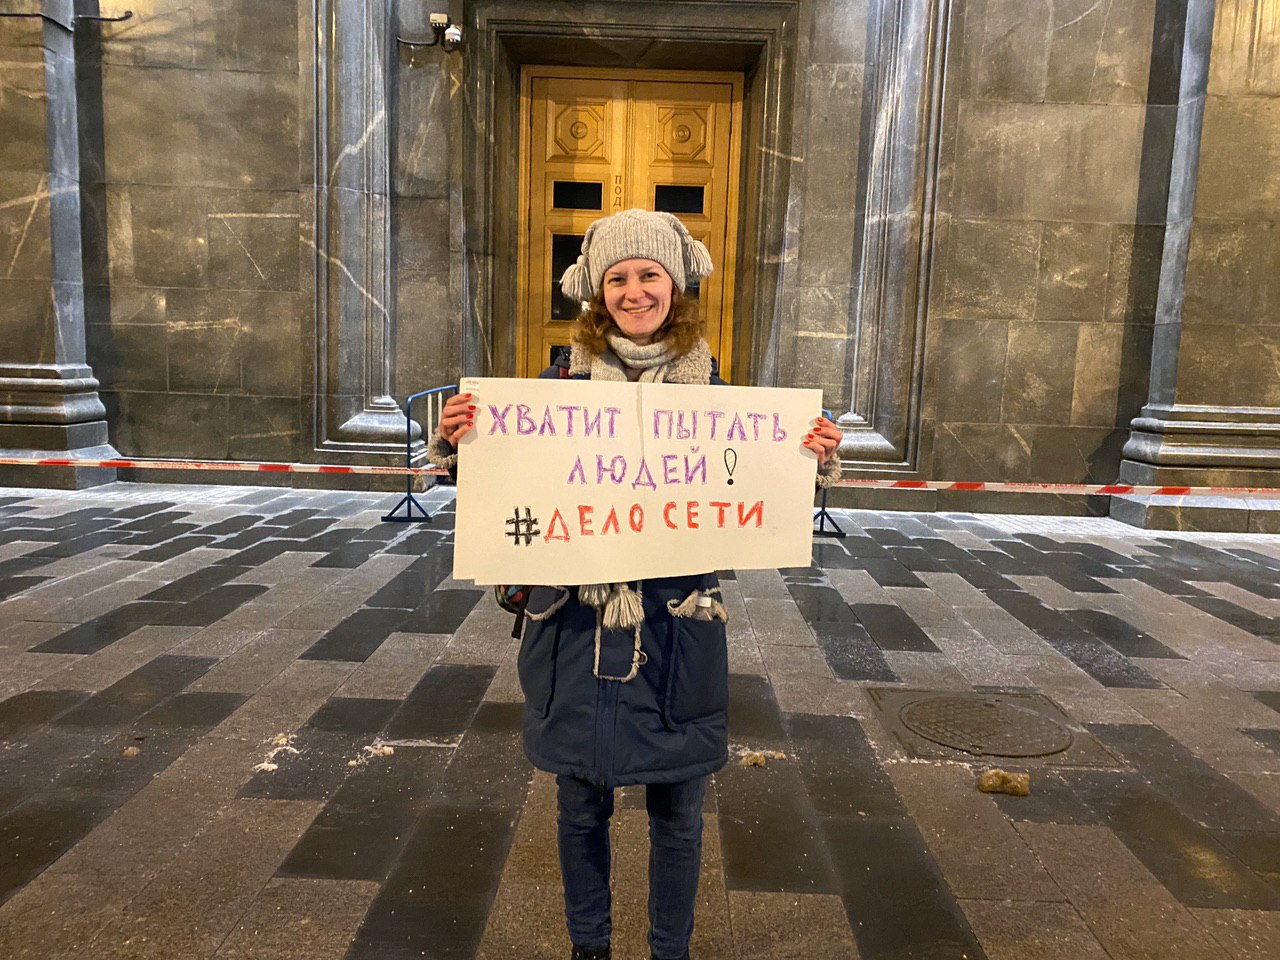 ПОД
ХВАТИТ ПЫТАТЬ
ЛЮДЕЙ!
#ДЕЛО СЕТИ